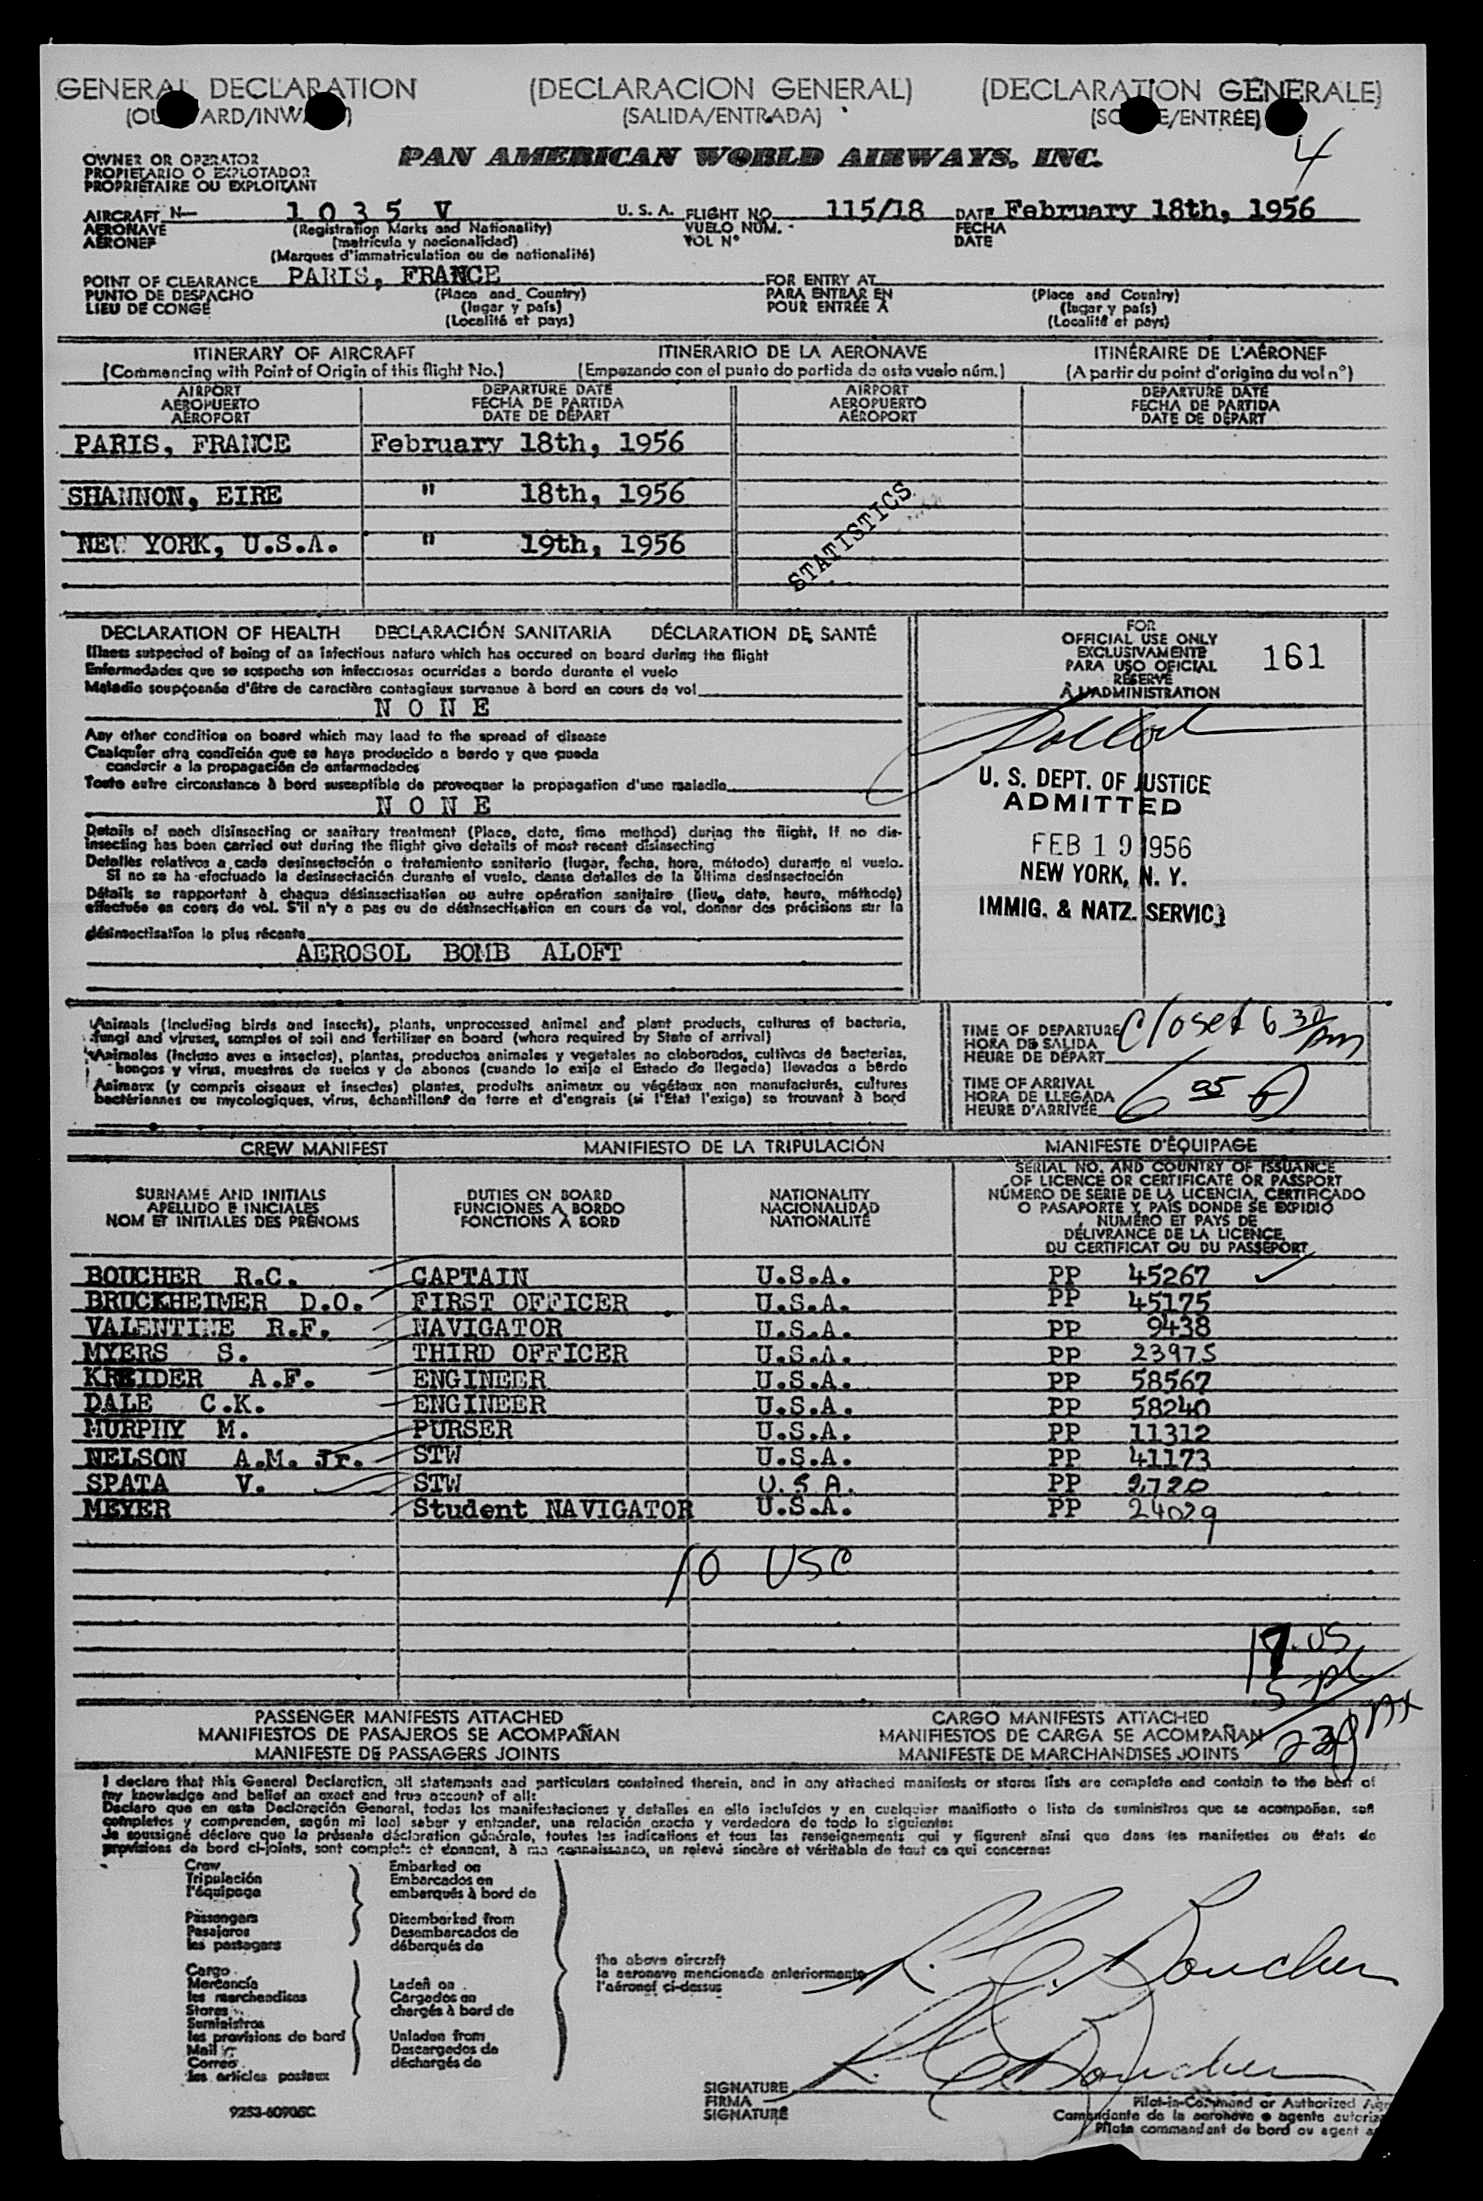 GENERAL DECLARATION (DECLARACION GENERAL) (DECLARATION GÉNÉRALE)
(SALIDA/ENTRADA)
4
OWNER OR OPERATOR
PROPIETARIO O EXPLOTADOR
PROPRIÉTAIRE OU EXPLOITANT
PAN AMERICAN WORLD AIRWAYS, INC.
AIRCRAFT N— 1 0 3 5 V U. S. A. FLIGHT NO. 115/18 DATE February 18th, 1956
AERONAVE (Registration Marks and Nationality) VUELO NUM. FECHA
AÉRONEF (matrícula y nacionalidad) VOL N° DATE
(Marques d'immatriculation ou de nationalité)
POINT OF CLEARANCE PARIS, FRANCE FOR ENTRY AT
PUNTO DE DESPACHO (Place and Country) PARA ENTRAR EN (Place and Country)
LIEU DE CONGÉ (lugar y país) POUR ENTRÉE A (lugar y país)
(Localité et pays) (Localité et pays)
ITINERARY OF AIRCRAFT ITINERARIO DE LA AERONAVE ITINÉRAIRE DE L'AÉRONEF
(Commencing with Point of Origin of this flight No.) (Empezando con el punto de partida de este vuelo núm.) (A partir du point d'origine du vol n°)
AIRPORT DEPARTURE DATE AIRPORT DEPARTURE DATE
AEROPUERTO FECHA DE PARTIDA AEROPUERTO FECHA DE PARTIDA
AÉROPORT DATE DE DÉPART AÉROPORT DATE DE DÉPART
PARIS, FRANCE February 18th, 1956
SHANNON, EIRE " 18th, 1956
NEW YORK, U.S.A. " 19th, 1956
STATISTICS
DECLARATION OF HEALTH DECLARACIÓN SANITARIA DÉCLARATION DE SANTÉ
Illness suspected of being of an infectious nature which has occured on board during the flight
Enfermedades que se sospecha son infecciosas ocurridas a bordo durante el vuelo
Maladie soupçonnée d'être de caractère contagieux survenue à bord en cours de vol
N O N E
Any other condition on board which may lead to the spread of disease
Cualquier otra condición que se haya producido a bordo y que pueda
conducir a la propagación de enfermedades
Toute autre circonstance à bord susceptible de provoquer la propagation d'une maladie
N O N E
Details of each disinsecting or sanitary treatment (Place, date, time method) during the flight. If no dis-
insecting has been carried out during the flight give details of most recent disinsecting
Detalles relativos a cada desinsectación o tratamiento sanitario (lugar, fecha, hora, método) durante el vuelo.
Si no se ha efectuado la desinsectación durante el vuelo, dense detalles de la última desinsectación
Détails se rapportant à chaque désinsectisation ou autre opération sanitaire (lieu, date, heure, méthode)
effectuée en cours de vol. S'il n'y a pas eu de désinsectisation en cours de vol, donner des précisions sur la
désinsectisation la plus récente
AEROSOL BOMB ALOFT
FOR
OFFICIAL USE ONLY
EXCLUSIVAMENTE
PARA USO OFICIAL
RÉSERVÉ
À L'ADMINISTRATION
161
U. S. DEPT. OF JUSTICE
ADMITTED
FEB 19 1956
NEW YORK, N. Y.
IMMIG. & NATZ. SERVICE
Animals (including birds and insects), plants, unprocessed animal and plant products, cultures of bacteria,
fungi and viruses, samples of soil and fertilizer on board (where required by State of arrival)
Animales (incluso aves e insectos), plantas, productos animales y vegetales no elaborados, cultivos de bacterias,
hongos y virus, muestras de suelos y de abonos (cuando lo exije el Estado de llegada) llevados a bordo
Animaux (y compris oiseaux et insectes) plantes, produits animaux ou végétaux non manufacturés, cultures
bactériennes ou mycologiques, virus, échantillons de terre et d'engrais (si l'Etat l'exige) se trouvant à bord
TIME OF DEPARTURE Closed 6 30 pm
HORA DE SALIDA
HEURE DE DÉPART
TIME OF ARRIVAL
HORA DE LLEGADA
HEURE D'ARRIVÉE
CREW MANIFEST MANIFIESTO DE LA TRIPULACIÓN MANIFESTE D'ÉQUIPAGE
SURNAME AND INITIALS
APELLIDO E INICIALES
NOM ET INITIALES DES PRÉNOMS
DUTIES ON BOARD
FUNCIONES A BORDO
FONCTIONS À BORD
NATIONALITY
NACIONALIDAD
NATIONALITÉ
SERIAL NO. AND COUNTRY OF ISSUANCE
OF LICENCE OR CERTIFICATE OR PASSPORT
NÚMERO DE SERIE DE LA LICENCIA, CERTIFICADO
O PASAPORTE Y PAIS DONDE SE EXPIDIÓ
NUMÉRO ET PAYS DE
DÉLIVRANCE DE LA LICENCE,
DU CERTIFICAT OU DU PASSEPORT
BOUCHER R.C. CAPTAIN U.S.A. PP 45267
BRUCKHEIMER D.O. FIRST OFFICER U.S.A. PP 45175
VALENTINE R.F. NAVIGATOR U.S.A. PP 9438
MYERS S. THIRD OFFICER U.S.A. PP 23975
KREIDER A.F. ENGINEER U.S.A. PP 58567
DALE C.K. ENGINEER U.S.A. PP 58240
MURPHY M. PURSER U.S.A. PP 11312
NELSON A.M. Jr. STW U.S.A. PP 41173
SPATA V. STW U.S.A. PP 2720
MEYER Student NAVIGATOR U.S.A. PP 24029
10 USC
PASSENGER MANIFESTS ATTACHED CARGO MANIFESTS ATTACHED
MANIFIESTOS DE PASAJEROS SE ACOMPAÑAN MANIFIESTOS DE CARGA SE ACOMPAÑAN
MANIFESTE DE PASSAGERS JOINTS MANIFESTE DE MARCHANDISES JOINTS
I declare that this General Declaration, all statements and particulars contained therein, and in any attached manifests or stores lists are complete and contain to the best of
my knowledge and belief an exact and true account of all:
Declaro que en esta Declaración General, todas las manifestaciones y detalles en ella incluídos y en cualquier manifiesto o lista de suministros que se acompañan, son
completos y comprenden, según mi leal saber y entender, una relación exacta y verdadera de todo lo siguiente:
Je soussigné déclare que la présente déclaration générale, toutes les indications et tous les renseignements qui y figurent ainsi que dans les manifestes ou états de
provisions de bord ci-joints, sont complets et donnent, à ma connaissance, un relevé sincère et véritable de tout ce qui concerne:
Crew Embarked on
Tripulación Embarcados en
l'équipage embarqués à bord de
Passengers Disembarked from
Pasajeros Desembarcados de
les passagers débarqués de
the above aircraft
la aeronave mencionada anteriormente
l'aéronef ci-dessus
Cargo
Mercancía Laden on
les marchandises Cargados en
Stores chargés à bord de
Suministros
les provisions de bord Unladen from
Mail Descargados de
Correo déchargés de
les articles postaux
R. C. Boucher
R. C. Boucher
SIGNATURE
FIRMA
SIGNATURE
Pilot-in-Command or Authorized
Comandante de la aeronave o agente
Pilote commandant de bord ou agent
9253-60906C